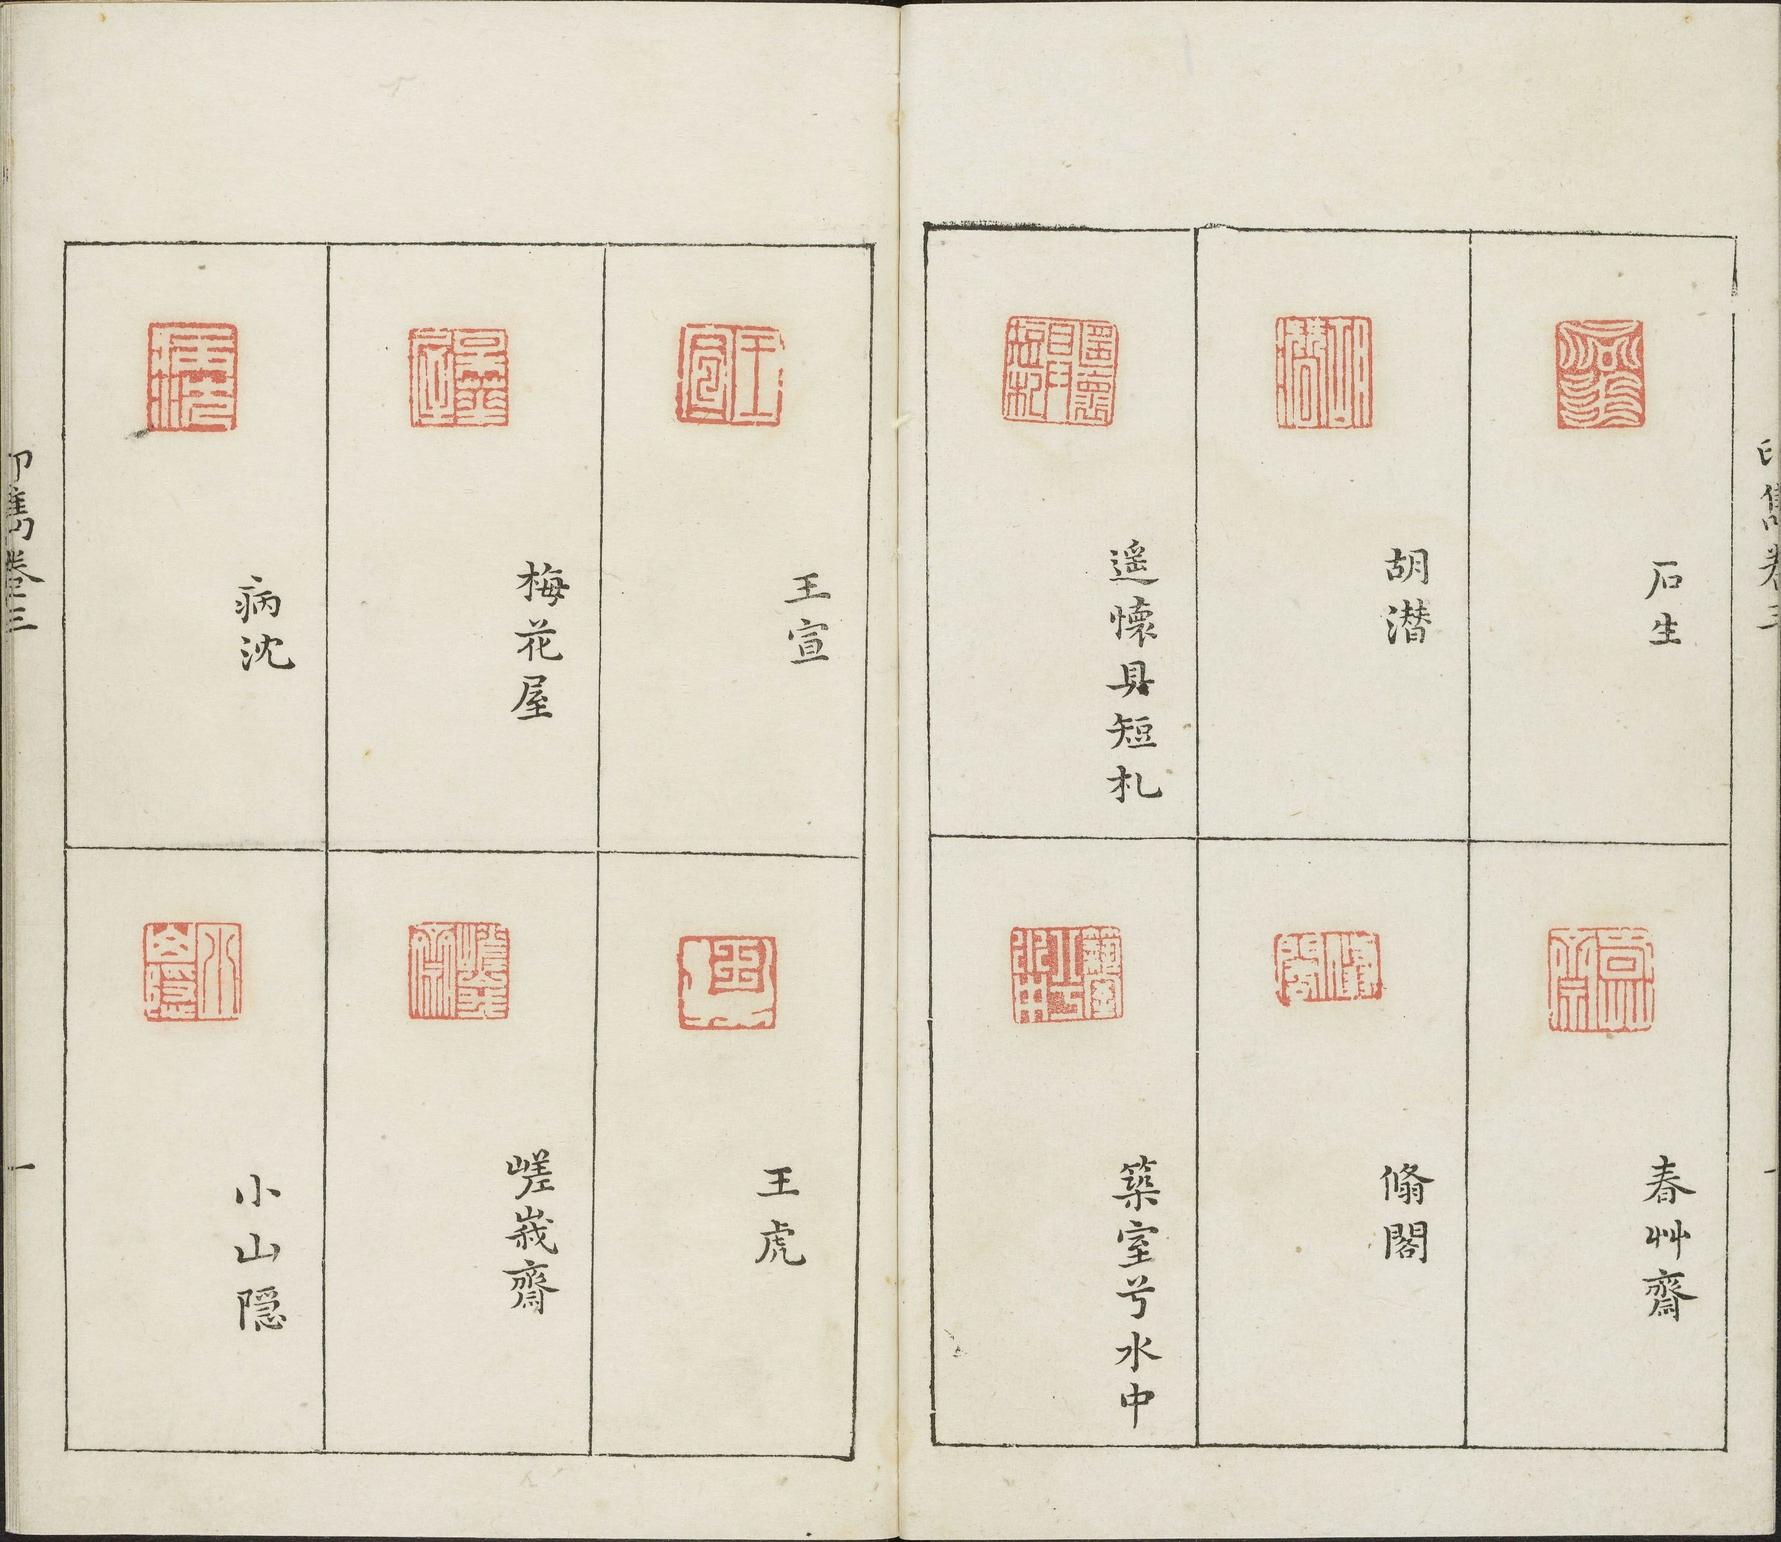 印雋卷三
石生
春艸齋
胡潛
翛閣
遥懷具短札
築室兮水中
王宣
王虎
梅花屋
嵯峩齋
病沈
小山隱
印雋卷三
一